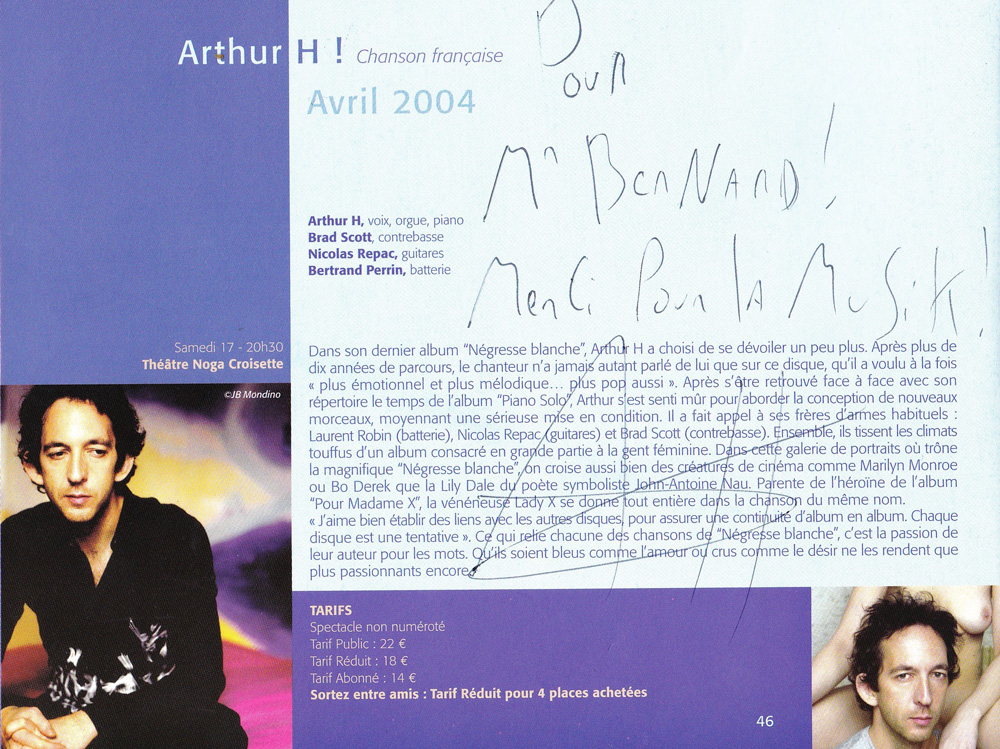 Arthur H ! Chanson française
Avril 2004
Pour
Mr BERNARD!
Merci Pour lA MuSiK!
Arthur H, voix, orgue, piano
Brad Scott, contrebasse
Nicolas Repac, guitares
Bertrand Perrin, batterie
Samedi 17 - 20h30
Théâtre Noga Croisette
©JB Mondino
Dans son dernier album “Négresse blanche”, Arthur H a choisi de se dévoiler un peu plus. Après plus de
dix années de parcours, le chanteur n’a jamais autant parlé de lui que sur ce disque, qu’il a voulu à la fois
« plus émotionnel et plus mélodique… plus pop aussi ». Après s’être retrouvé face à face avec son
répertoire le temps de l’album “Piano Solo”, Arthur s’est senti mûr pour aborder la conception de nouveaux
morceaux, moyennant une sérieuse mise en condition. Il a fait appel à ses frères d’armes habituels :
Laurent Robin (batterie), Nicolas Repac (guitares) et Brad Scott (contrebasse). Ensemble, ils tissent les climats
touffus d’un album consacré en grande partie à la gent féminine. Dans cette galerie de portraits où trône
la magnifique “Négresse blanche”, on croise aussi bien des créatures de cinéma comme Marilyn Monroe
ou Bo Derek que la Lily Dale du poète symboliste John-Antoine Nau. Parente de l’héroïne de l’album
“Pour Madame X”, la vénéneuse Lady X se donne tout entière dans la chanson du même nom.
« J’aime bien établir des liens avec les autres disques, pour assurer une continuité d’album en album. Chaque
disque est une tentative ». Ce qui relie chacune des chansons de “Négresse blanche”, c’est la passion de
leur auteur pour les mots. Qu’ils soient bleus comme l’amour ou crus comme le désir ne les rendent que
plus passionnants encore.
TARIFS
Spectacle non numéroté
Tarif Public : 22 €
Tarif Réduit : 18 €
Tarif Abonné : 14 €
Sortez entre amis : Tarif Réduit pour 4 places achetées
46